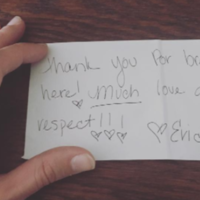 Thank you for
here! Much love
respect!!!